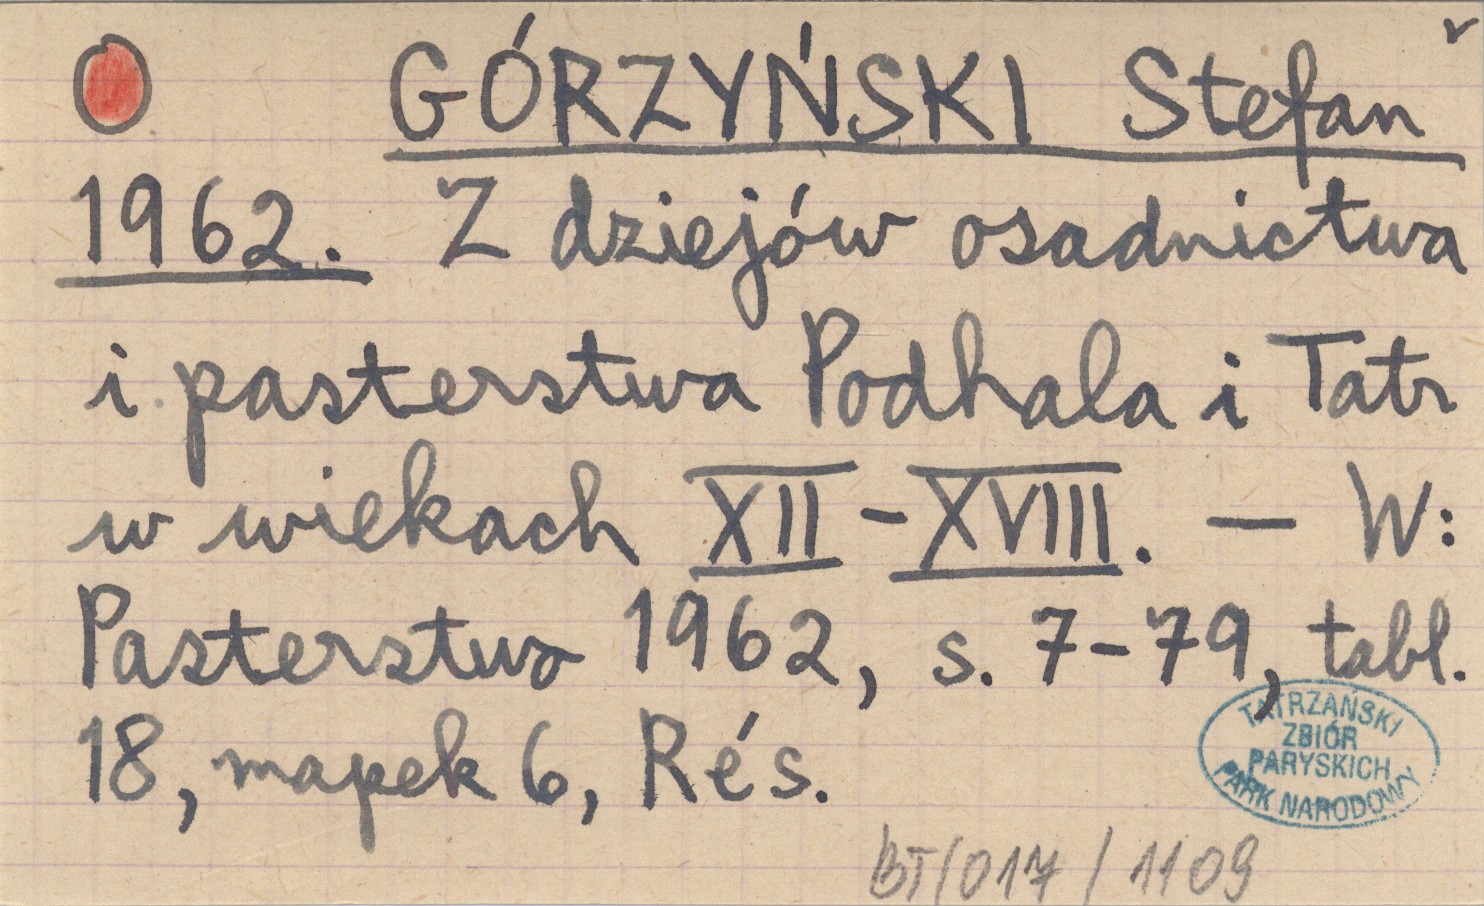 GÓRZYŃSKI Stefan
1962. Z dziejów osadnictwa
i pasterstwa Podhala i Tatr
w wiekach XII - XVIII. — W:
Pasterstwo 1962, s. 7-79, tabl.
18, mapek 6, Rés.
TATRZAŃSKI
ZBIÓR
PARYSKICH
PARK NARODOWY
BT/017/1109